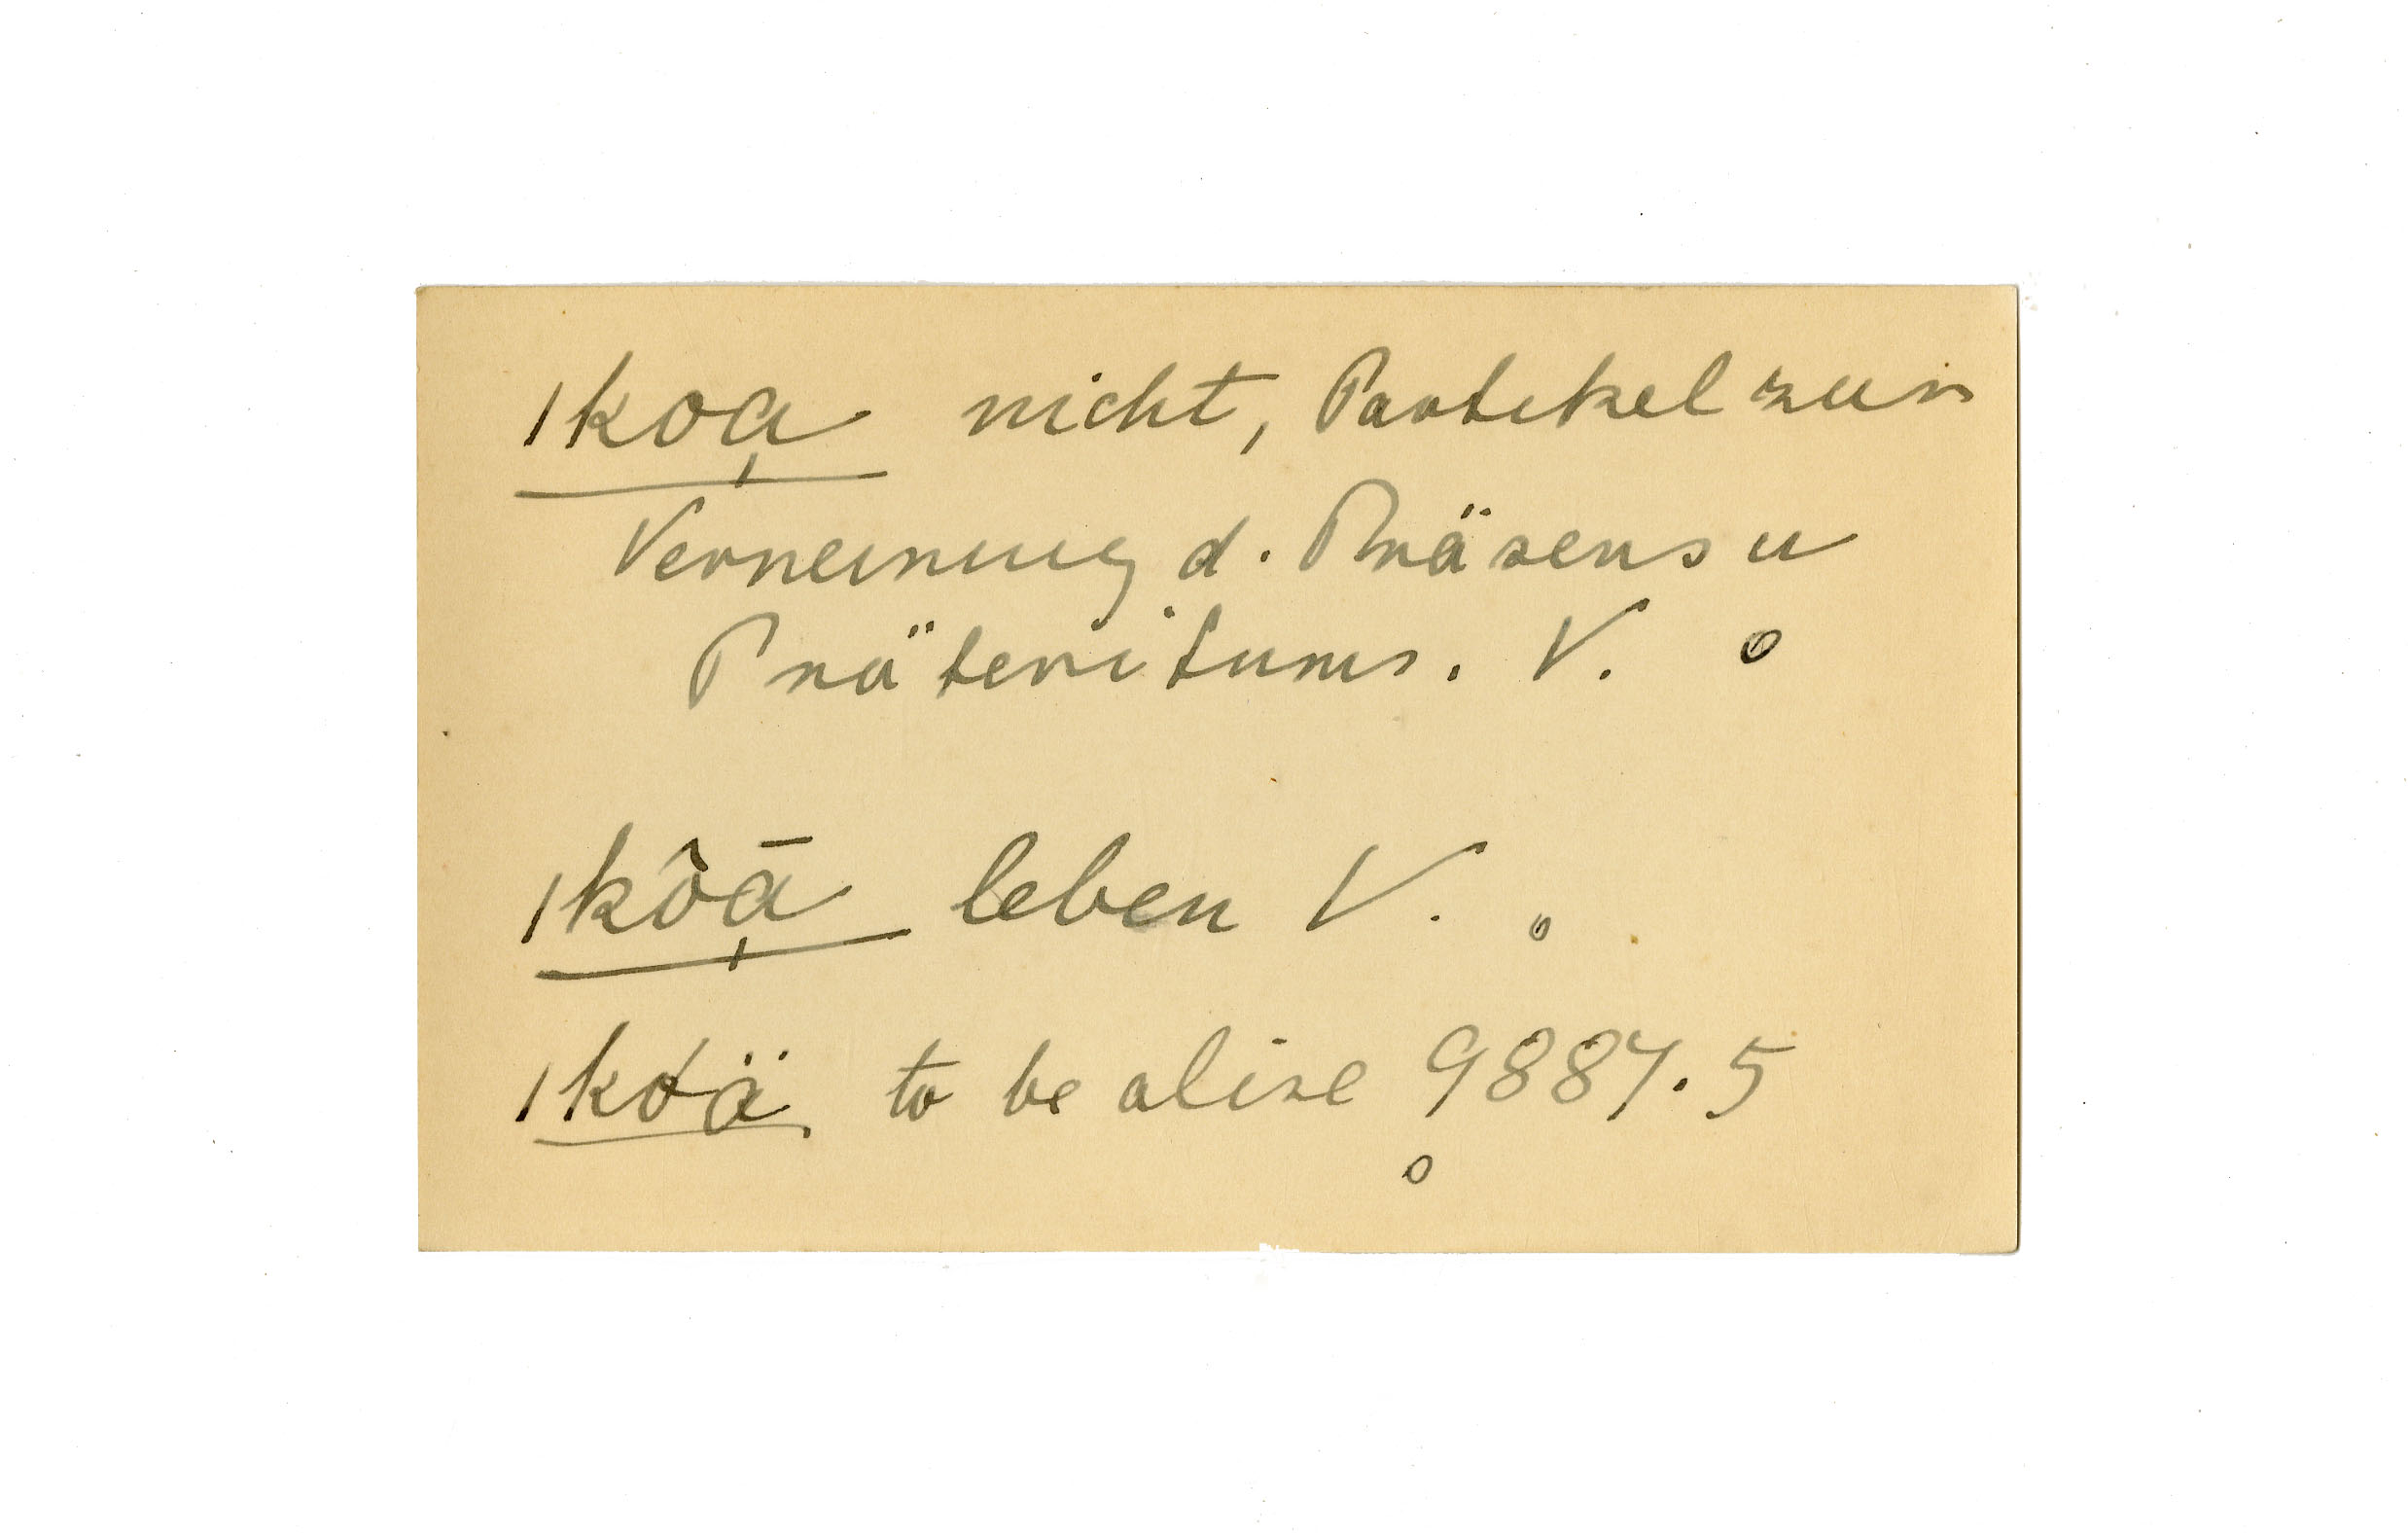 ǀkoa̩ nicht, Partikel zur
Verneinung d. Präsens u
Präteritums. V. o
ǀkôā̩ leben V. o
ǀkóä to be alive 9887.5
o